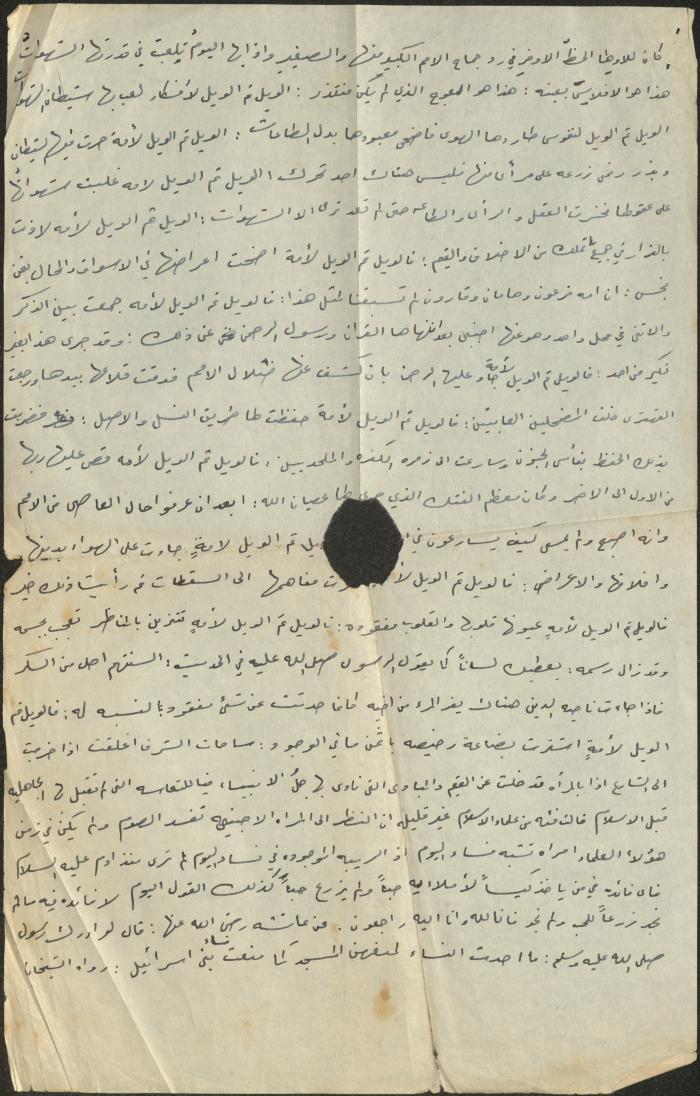 كان للاوطا الحظّ الاوفر في رد جماح الامم الكبير منها والصغير واذا بها اليوم تبلعت في قدرتها الشهوات
هذا هو الافلاس بعينه : هذا هو المعوج الذي لم يكن منتقذر : الويل ثم الويل لأفكار لعب بها شيطان الشهوات
الويل ثم الويل لنفوس طاردها الهوى فاضحى معبودها بدل الطاعات : الويل ثم الويل لأمة حرث فيها الشيطان
وبذر رمى زرعه على مرأى منها فليس هناك احد تحرك ! الويل ثم الويل لامه غلبت شهواتها
على عقولها فخسرت العقل والرأى والطاعه حتى لم تعد ترى الا الشهوات : الويل ثم الويل لأمه لاذت
بالفرار في جميع ما تملك من الاخلاق والقيم : فالويل ثم الويل لأمة اضحت اعراضها في الاسواق والحال بثمن
بخس : ان امه فرعون وهامان وقارون لم تسبقنا لمثل هذا : فالويل ثم الويل لأمه جمعت بين الذكر
والانثى في محل واحد وهو عنها اجنبى بعد انهاها القرآن ورسول الرحمن عن ذلك : وقد جرى هذا بغير
نكير من احد : فالويل ثم الويل لأمة جاد عليها الرحمن بان كشف عنها ضلال الامم فدقت قلاعها بيدها ورجعت
القهقرى خلف المضمحلين العابثين : فالويل ثم الويل لأمة حفظت لها طريق النسل والاصل : فضربت
بذلك الحفظ بفأس الجنون وسارعت الى زمره الكفره والملحدين : فالويل ثم الويل لأمه قص عليها ربها
من الاول الى الاخر وكان معظم الفتك الذي جرى لها عصيان الله : ابعد ان عرفوا حال العاصى من الامم
وانه اصبح ولم يمسى كيف يسارعون في ... ويل ثم الويل لامةٍ جادت على الهوا بدينها
واخلاقها والاعراض : فالويل ثم الويل لأ... مفاهمها الى السقطات ثم رأيت ذلك خير
فالويل ثم الويل لأمهٍ عيونها قلوبها والقلوب مفقوده : فالويل ثم الويل لأمةٍ تتزين بالمناظر تعجب بجسمه
وقد زال رسمه : يعطيك لساناً كما يقول الرسول صلى الله عليه في الحديث : السنتهم احلى من السكر
فاذا جاءت ناحيه الدين هناك يفر المرء من اخيه كانما حدثت عن شئ مفقود بالنسبه له : فالويل ثم
الويل لأمةٍ اشترت بضاعة رخيصه باثمن ما في الوجود : ساحات الشرف اغلقت اذا خرجت
الى الشارع اذا بالمرأه قد خلت عن القيم والمبادى التى نادى بها جلُّ الانبياء فيا للتعاسه التى لم تقبل لها الجاهليه
قبل الاسلام قالت فئه من علماء الاسلام غير قليله ان النظر الى المراه الاجنبيه تفسد الصوم ولم يكن في زمن
هؤلاء العلماء امراه تشبه نساء اليوم اذ الريبه الموجوده في نساء اليوم لم ترى منذ ادم عليه السلام
فاى فائده في من ياخذ كيساً لأملاءيه حباً ولم يزرع حباً كذلك القول اليوم لا فائده فيه مالم
نجد زرعاً للحب ولم نجد فانا لله وانا اليه راجعون . فعن عائشه رضى الله عنها : قال لو ادرك رسول
صلى الله عليه وسلم : ما احدث النساء لمنعهن المسجد كما منعت نساء بنى اسرائيل : رواه الشيخان